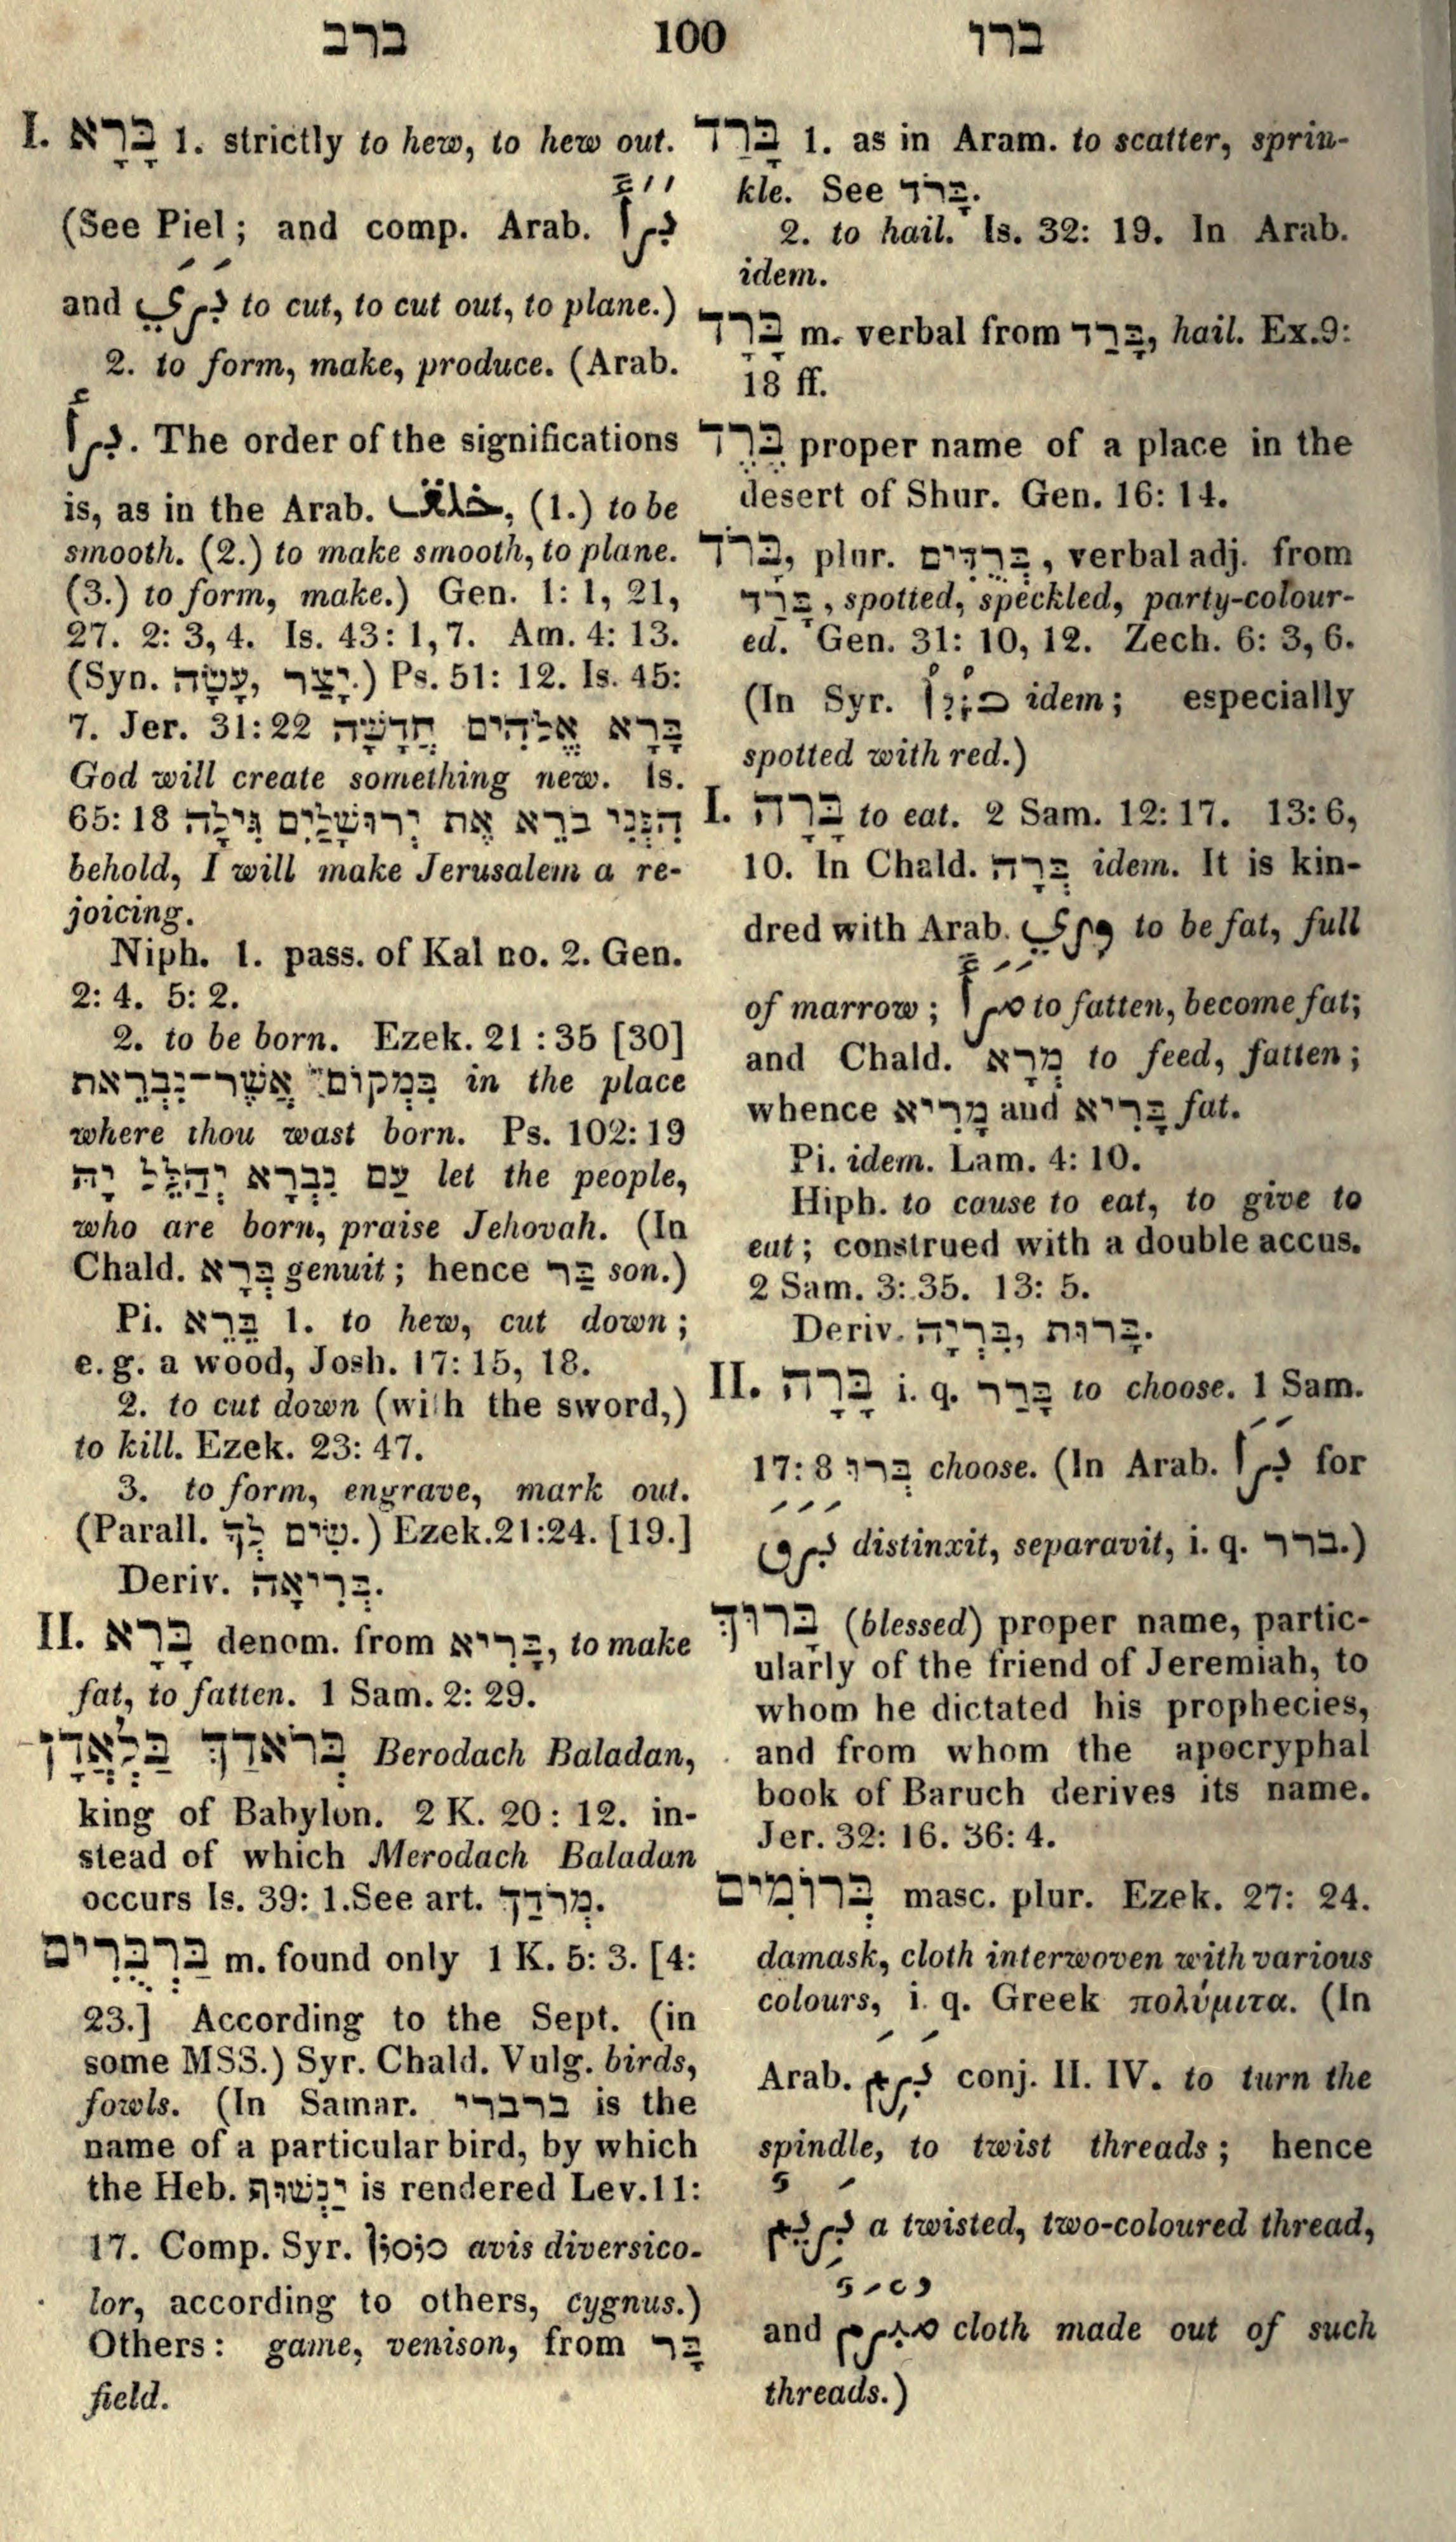 ברב 100 ברו
I. בָּרָא 1. strictly to hew, to hew out.
(See Piel; and comp. Arab. بَرَأَ
and بَرَي to cut, to cut out, to plane.)
2. to form, make, produce. (Arab.
برأ. The order of the significations
is, as in the Arab. خلق, (1.) to be
smooth. (2.) to make smooth, to plane.
(3.) to form, make.) Gen. 1: 1, 21,
27. 2: 3, 4. Is. 43: 1, 7. Am. 4: 13.
(Syn. עָשָׂה, יָצַר.) Ps. 51: 12. Is. 45:
7. Jer. 31: 22 בָּרָא אֱלֹהִים חֲדָשָׁה
God will create something new. Is.
65: 18 הִנְנִי בֹרֵא אֶת יְרוּשָׁלַיִם גִּילָה
behold, I will make Jerusalem a re-
joicing.
Niph. 1. pass. of Kal no. 2. Gen.
2: 4. 5: 2.
2. to be born. Ezek. 21: 35 [30]
בִּמְקוֹם אֲשֶׁר־נִבְרֵאת in the place
where thou wast born. Ps. 102: 19
עַם נִבְרָא יְהַלֵּל יָהּ let the people,
who are born, praise Jehovah. (In
Chald. בְּרָא genuit; hence בַּר son.)
Pi. בֵּרֵא 1. to hew, cut down;
e. g. a wood, Josh. 17: 15, 18.
2. to cut down (with the sword,)
to kill. Ezek. 23: 47.
3. to form, engrave, mark out.
(Parall. שִׂים לְךָ.) Ezek. 21: 24. [19.]
Deriv. בְּרִיאָה.
II. בָּרָא denom. from בָּרִיא, to make
fat, to fatten. 1 Sam. 2: 29.
בְּרֹאדַךְ בַּלְאֲדָן Berodach Baladan,
king of Babylon. 2 K. 20: 12. in-
stead of which Merodach Baladan
occurs Is. 39: 1. See art. מְרֹדַךְ.
בַּרְבֻּרִים m. found only 1 K. 5: 3. [4:
23.] According to the Sept. (in
some MSS.) Syr. Chald. Vulg. birds,
fowls. (In Samar. ברברי is the
name of a particular bird, by which
the Heb. יַנְשׁוּף is rendered Lev. 11:
17. Comp. Syr. avis diversico-
lor, according to others, cygnus.)
Others: game, venison, from בָּר
field.
בָּרַד 1. as in Aram. to scatter, sprin-
kle. See בָּרֹד.
2. to hail. Is. 32: 19. In Arab.
idem.
בָּרָד m. verbal from בָּרַד, hail. Ex. 9:
18 ff.
בֶּרֶד proper name of a place in the
desert of Shur. Gen. 16: 14.
בָּרֹד, plur. בְּרֻדִּים, verbal adj. from
בָּרַד, spotted, speckled, party-colour-
ed. Gen. 31: 10, 12. Zech. 6: 3, 6.
(In Syr. idem; especially
spotted with red.)
I. בָּרָה to eat. 2 Sam. 12: 17. 13: 6,
10. In Chald. בְּרָה idem. It is kin-
dred with Arab. وري to be fat, full
of marrow; مَرَأَ to fatten, become fat;
and Chald. מְרָא to feed, fatten;
whence מָרִיא and בָּרִיא fat.
Pi. idem. Lam. 4: 10.
Hiph. to cause to eat, to give to
eat; construed with a double accus.
2 Sam. 3: 35. 13: 5.
Deriv. בָּרוּת, בִּרְיָה.
II. בָּרָה i. q. בָּרַר to choose. 1 Sam.
17: 8 בְּרוּ choose. (In Arab. بَرَا for
بَرَقَ distinxit, separavit, i. q. ברר.)
בָּרוּךְ (blessed) proper name, partic-
ularly of the friend of Jeremiah, to
whom he dictated his prophecies,
and from whom the apocryphal
book of Baruch derives its name.
Jer. 32: 16. 36: 4.
בְּרוֹמִים masc. plur. Ezek. 27: 24.
damask, cloth interwoven with various
colours, i. q. Greek πολύμιτα. (In
Arab. بَرِمَ conj. II. IV. to turn the
spindle, to twist threads; hence
بَرِيمٌ a twisted, two-coloured thread,
and مُبْرَمٌ cloth made out of such
threads.)